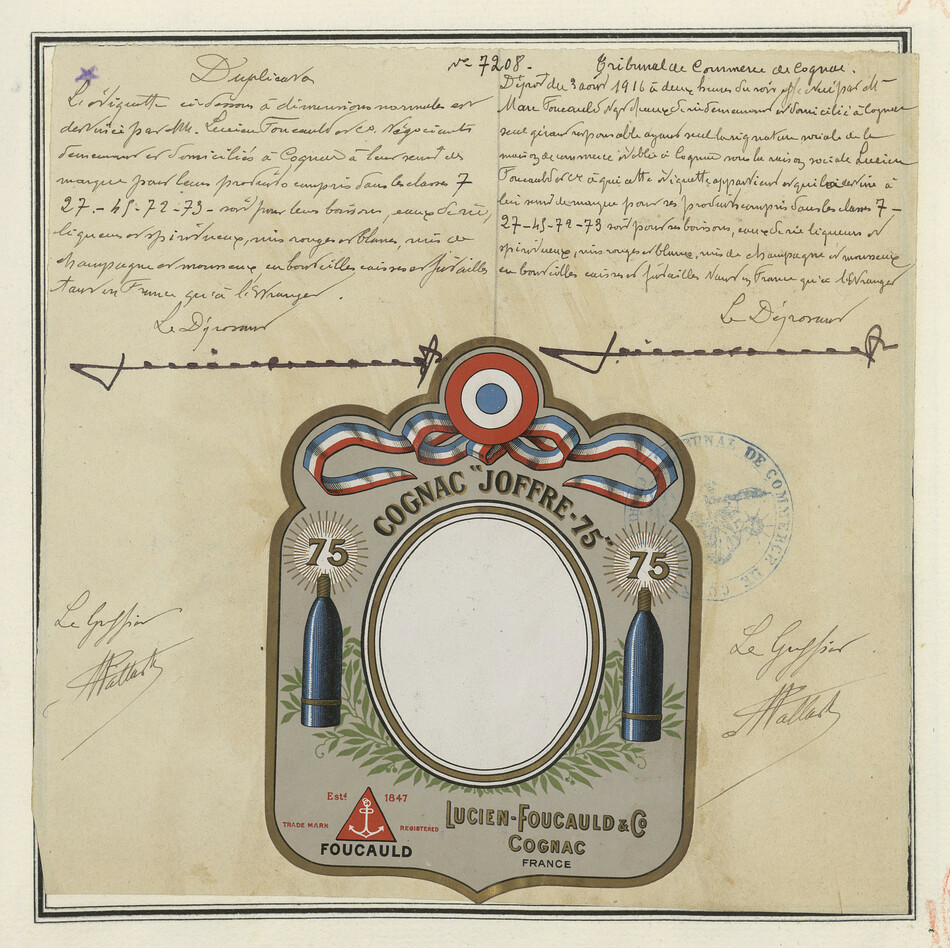 Duplicata
L'étiquette ci-dessous à dimensions normales est
destinée par MM. Lucien Foucauld et Co. Négociants
demeurant et domiciliés à Cognac à leur servir de
marque pour leurs produits compris dans les classes 7
27.-45-72-73- soit pour leurs boissons, eaux de vie,
liqueurs et spiritueux, vins rouges et blancs, vins de
champagne et mousseux, en bouteilles caisses et futailles
tant en France qu'à l'Etranger.
Le Déposant
No 7208.
Tribunal de Commerce de Cognac.
Dépôt du 3 août 1916 à deux heures du soir effectué par M
Marc Foucauld Négociant demeurant et domicilié à Cognac
seul gérant responsable ayant seul la signature sociale de la
maison de commerce établie à Cognac sous la raison sociale Lucien
Foucauld et Co à qui cette étiquette appartient et qui la destine à
lui servir de marque pour ses produits compris dans les classes 7-
27-45-72-73 soit pour ses boissons, eaux de vie liqueurs et
spiritueux, vins rouges et blancs, vins de champagne et mousseux
en bouteilles caisses et futailles tant en France qu'à l'Etranger
Le Déposant
COGNAC "JOFFRE-75"
75
75
TRIBUNAL DE COMMERCE DE
Le Greffier
Le Greffier
Estd 1847
TRADE MARK REGISTERED
FOUCAULD
LUCIEN-FOUCAULD & Co
COGNAC
FRANCE